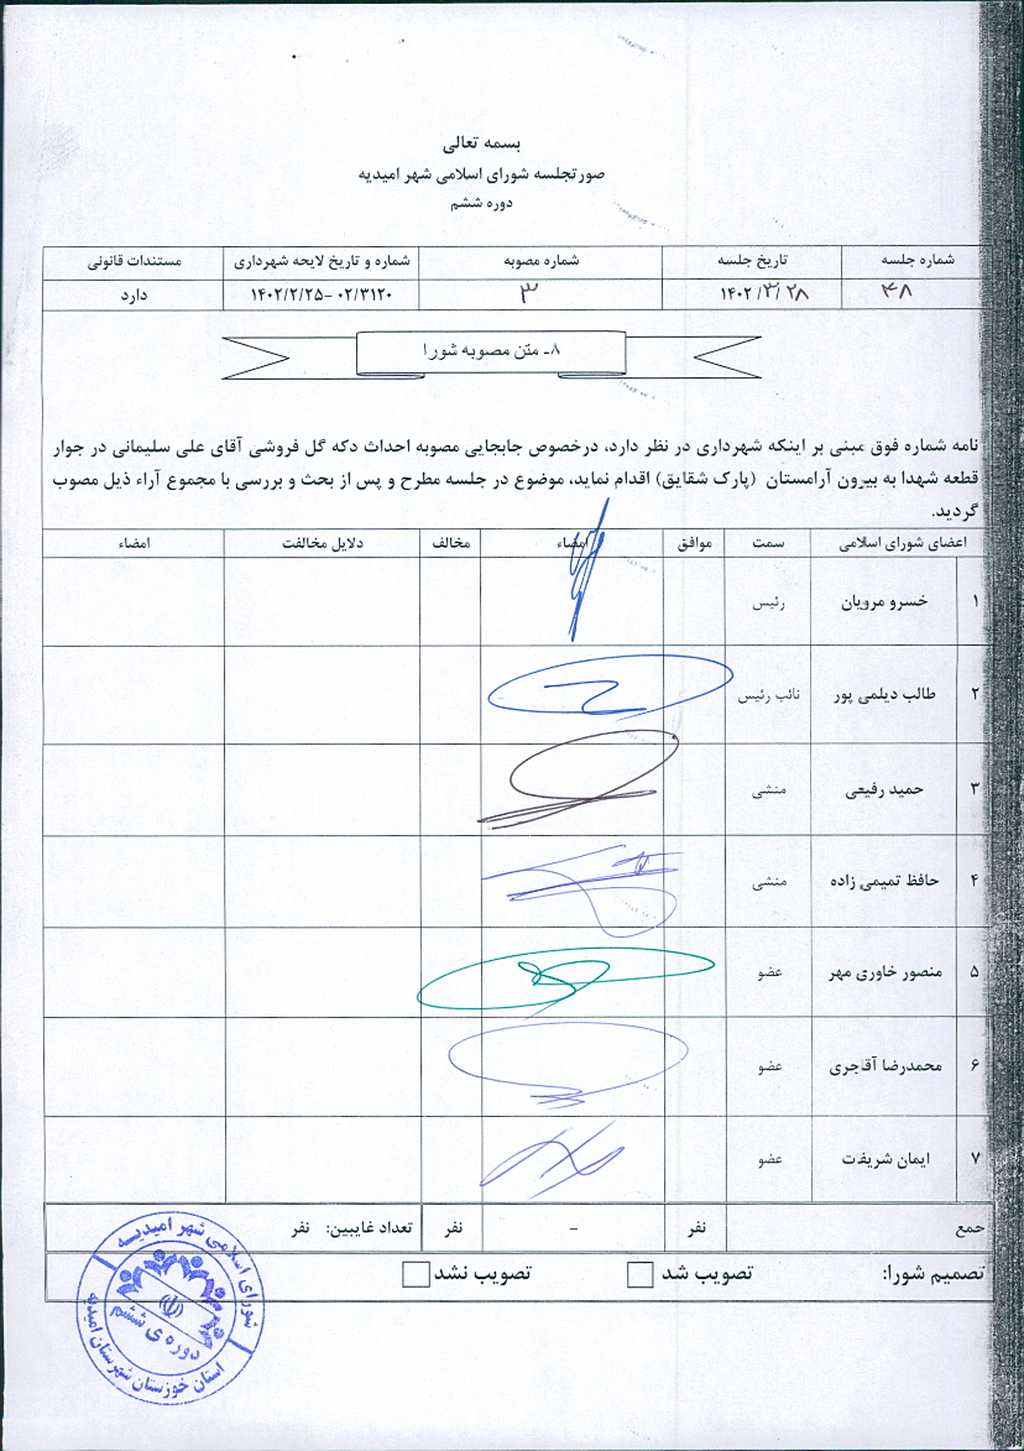 بسمه تعالی
صورتجلسه شورای اسلامی شهر امیدیه
دوره ششم
شماره جلسه	تاریخ جلسه	شماره مصوبه	شماره و تاریخ لایحه شهرداری	مستندات قانونی
۴۸	۱۴۰۲/۳/۲۸	۳	۰۲/۳۱۲۰ -۱۴۰۲/۲/۲۵	دارد
۸- متن مصوبه شورا
نامه شماره فوق مبنی بر اینکه شهرداری در نظر دارد، درخصوص جابجایی مصوبه احداث دکه گل فروشی آقای علی سلیمانی در جوار
قطعه شهدا به بیرون آرامستان (پارک شقایق) اقدام نماید، موضوع در جلسه مطرح و پس از بحث و بررسی با مجموع آراء ذیل مصوب
گردید.
اعضای شورای اسلامی	سمت	موافق	امضاء	مخالف	دلایل مخالفت	امضاء
۱	خسرو مرویان	رئیس
۲	طالب دیلمی پور	نائب رئیس
۳	حمید رفیعی	منشی
۴	حافظ تمیمی زاده	منشی
۵	منصور خاوری مهر	عضو
۶	محمدرضا آقاجری	عضو
۷	ایمان شریفات	عضو
جمع	نفر	–	نفر	تعداد غایبین: نفر
تصمیم شورا:	تصویب شد	تصویب نشد
شورای اسلامی شهر امیدیه
دوره ی ششم
استان خوزستان شهرستان امیدیه